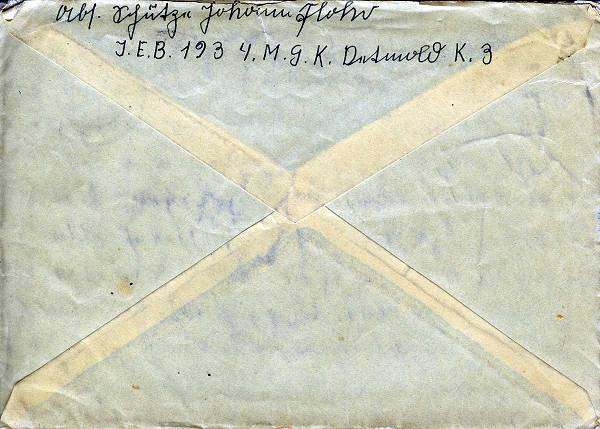 Abs. Schütze Johann Flohr
J.E.B. 193 4. M.G.K. Detmold K. 3